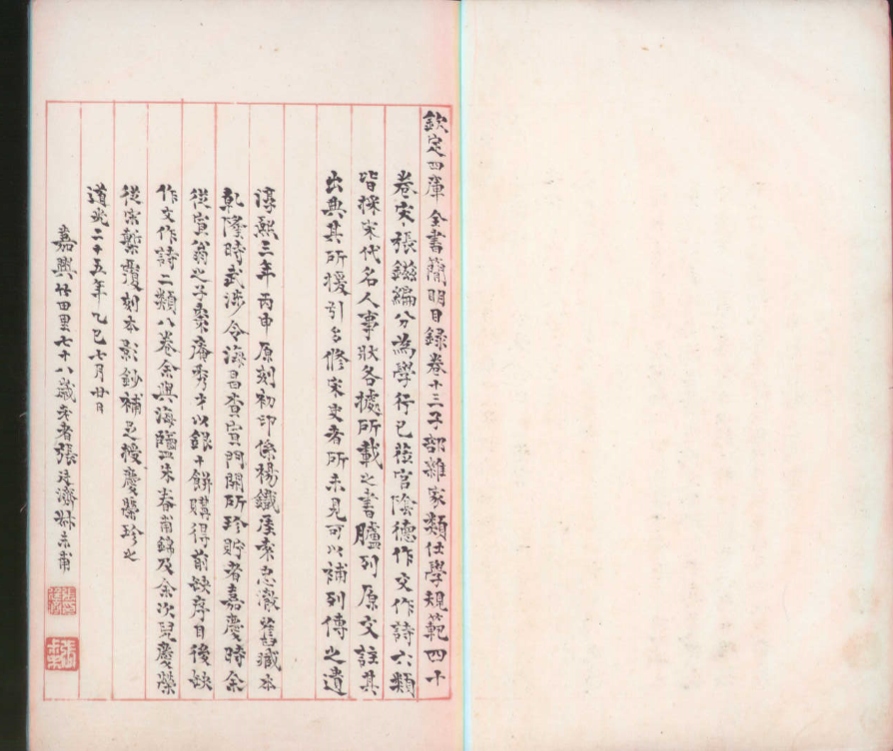 欽定四庫全書簡明目錄卷十三子部雜家類仕學規範四十
卷宋張鎡編分為學行己蒞官陰德作文作詩六類
皆採宋代名人事狀各據所載之書臚列原文註其
出典其所援引多修宋史者所未見可以補列傳之遺
淳熙三年丙申原刻初印係楊鐵崖忠澈舊藏本
乾隆時武涉令海昌查寅門開所珍貯者嘉慶時余
從寅翁之子奕庵秀才以銀十餅購得前缺序目後缺
作文作詩二類八卷余與海鹽朱春甫錦及余次兒慶榮
從宋槧覆刻本影鈔補足授慶榮珍之
道光二十五年乙巳七月廿日
嘉興竹田里七十八歲老者張廷濟叔未甫